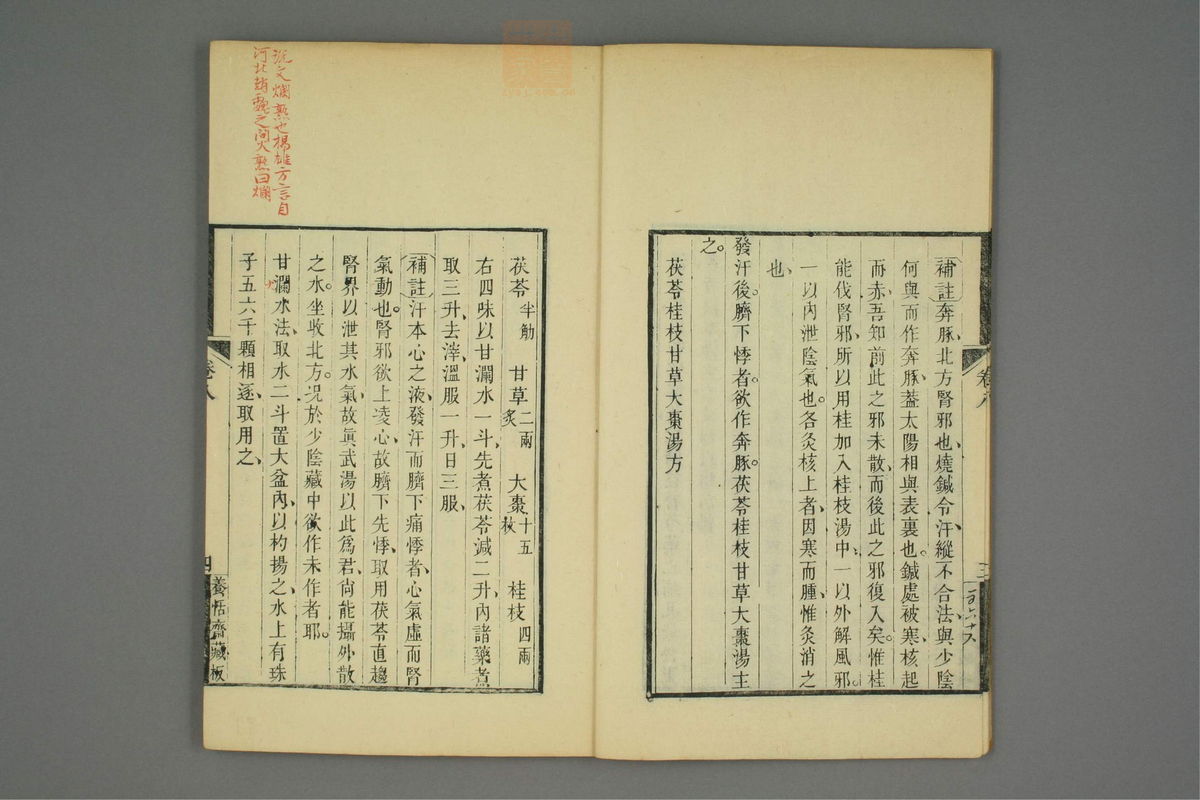 補註奔豚、北方腎邪也、燒鍼令汗、縱不合法、與少陰
何與、而作奔豚、葢太陽相與表裏也。鍼處被寒、核起
而赤、吾知前此之邪未散、而後此之邪復入矣。惟桂
能伐腎邪、所以用桂加入桂枝湯中、一以外解風邪。
一以內泄陰氣也。各灸核上者、因寒而腫、惟灸消之
也、
發汗後。臍下悸者。欲作奔豚。茯苓桂枝甘草大棗湯主
之。
茯苓桂枝甘草大棗湯方
卷八
三
茯苓半觔 甘草二兩炙 大棗十五枚 桂枝四兩
右四味以甘瀾水一斗、先煮茯苓減二升、內諸藥、煮
取三升、去滓、溫服一升、日三服、
補註汗本心之液、發汗而臍下痛悸者、心氣虛而腎
氣動也。腎邪欲上凌心、故臍下先悸、取用茯苓直趨
腎界、以泄其水氣、故眞武湯以此爲君、尙能攝外散
之水。坐收北方。況於少陰藏中欲作未作者耶。
甘瀾水法、取水二斗置大盆內、以杓揚之、水上有珠
子五六千顆相逐、取用之、
卷八
四
養恬齋藏板
說文爛熟也揚雄方言自
河北趙魏之間火熟曰爛